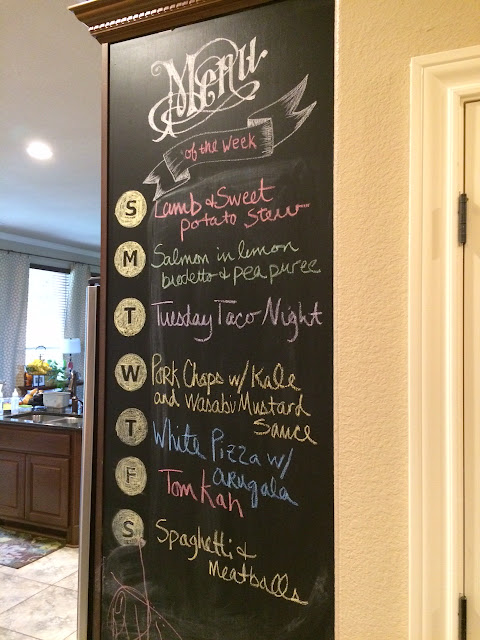 Menu
of the Week
S Lamb & Sweet
potato Stew
M Salmon in lemon
brodetto & pea puree
T Tuesday Taco Night
W Pork Chops w/ Kale
and Wasabi Mustard
Sauce
T White Pizza w/
arugala
F Tom Kah
S Spaghetti &
Meatballs